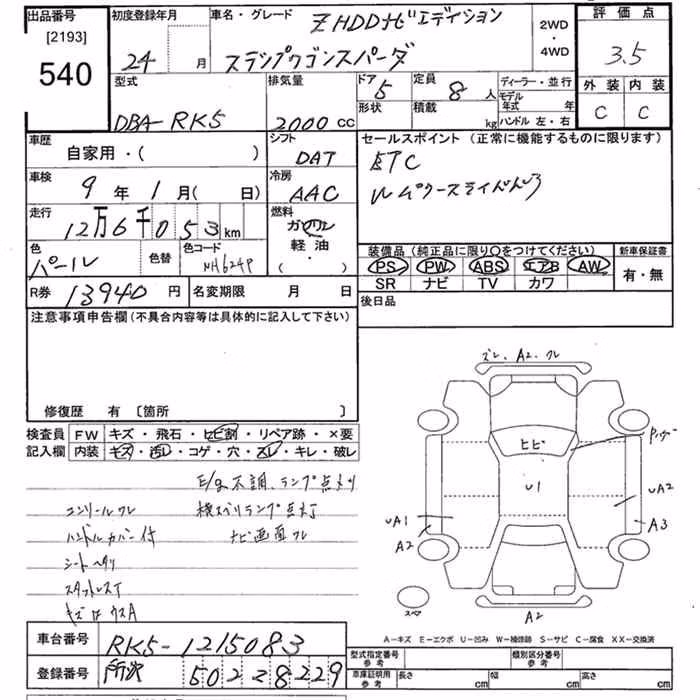 出品番号 [2193] 540
初度登録年月 24 月
車名・グレード Z HDDナビエディション
ステップワゴンスパーダ
2WD・4WD
評価点 3.5
外装 内装
C C
型式 DBA-RK5
排気量 2000 CC
ドア 5
形状
定員 8 人
積載 kg
ディーラー・並行
モデル年式 年
ハンドル 左・右
車歴 自家用・( )
シフト DAT
車検 9 年 1 月( 日)
冷房 AAC
走行 12万6千053 km
燃料 ガソリン 軽油・( )
色 パール
色替
色コード NH624P
セールスポイント (正常に機能するものに限ります)
ETC
装備品 (純正品に限り○をつけてください)
PS PW ABS エアB AW
SR ナビ TV カワ
新車保証書 有・無
R券 13940 円
名変期限 月 日
後日品
注意事項申告欄 (不具合内容等は具体的に記入して下さい)
修復歴 有 〔箇所 〕
検査員記入欄
FW キズ・飛石・ヒビ割・リペア跡・×要
内装 キズ・汚レ・コゲ・穴・スレ・キレ・破レ
E/g不調、ランプ点灯
コンソールワレ 横スベリランプ点灯
ハンドルカバー付 ナビ画面ワレ
シートヘタリ
スタットレスT
ズレ、A2、ワレ
ヒビ
U1
UA1
A2
UA2
A3
スペア
A2
A-キズ E-エクボ U-凹み W-補修跡 S-サビ C-腐食 XX-交換済
車台番号 RK5-1215083
登録番号 所沢 502 28229
型式指定番号 参考
類別区分番号 参考
車庫証明用 参考 長さ cm 幅 cm 高さ cm